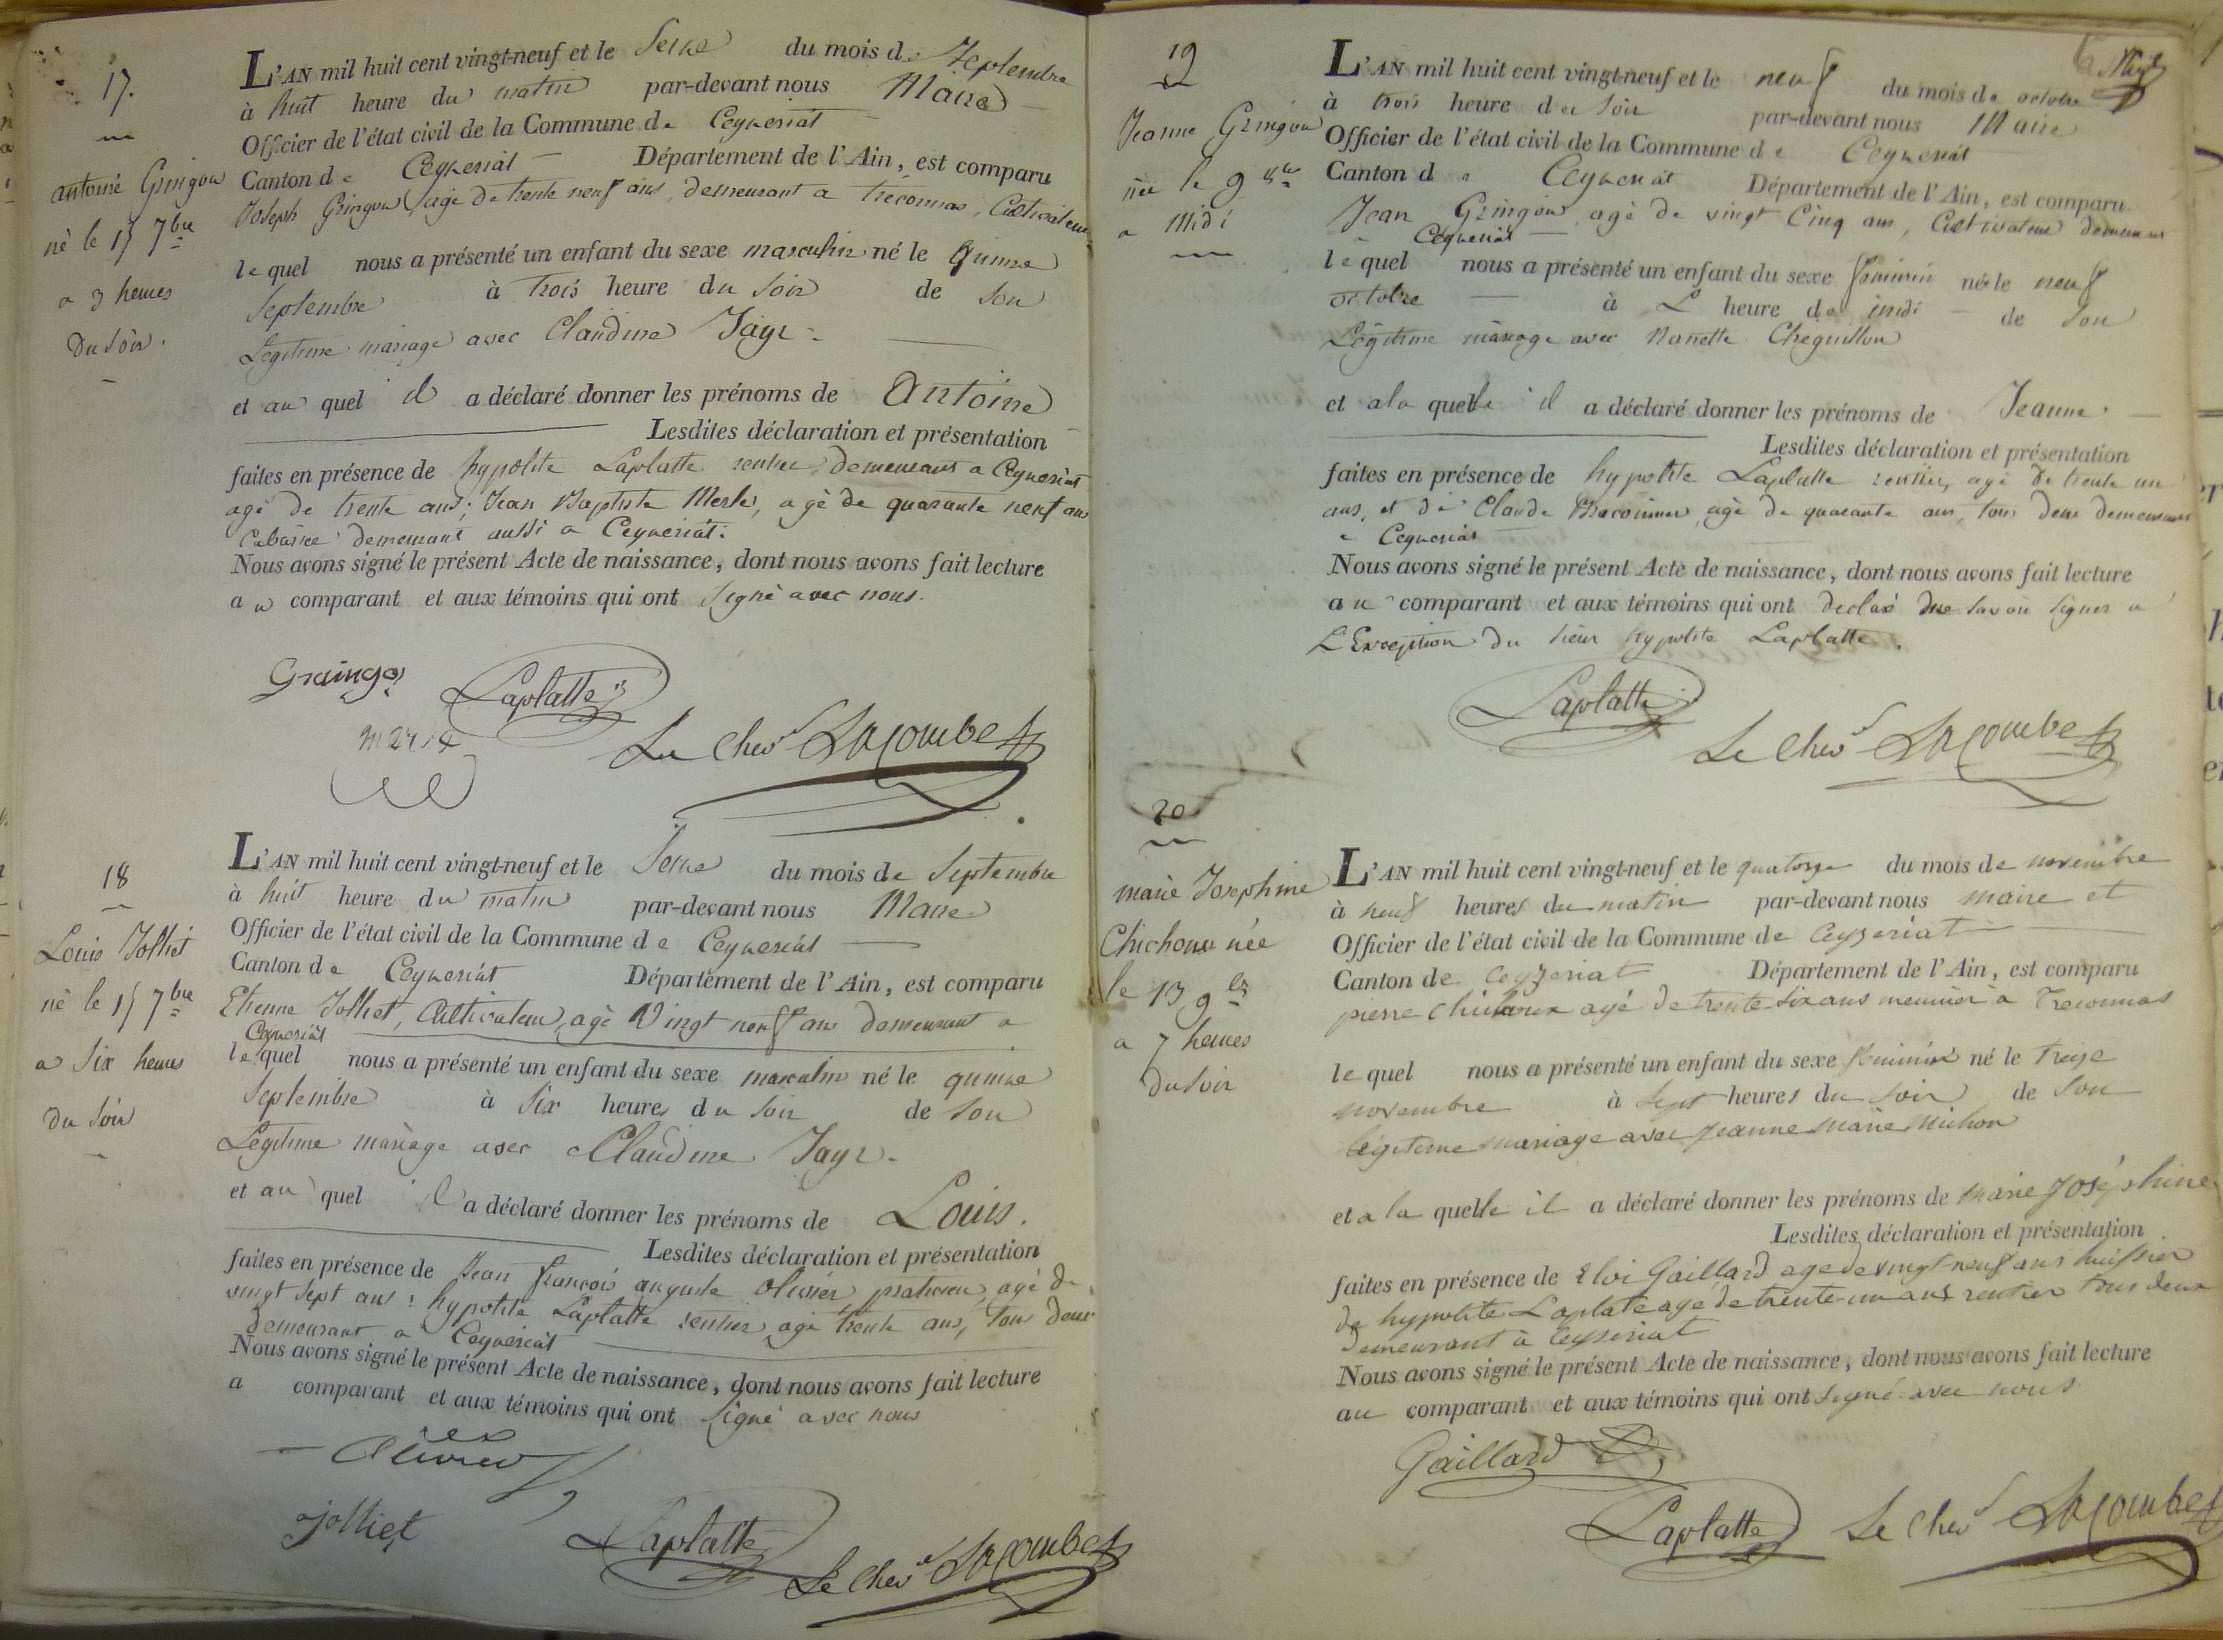 17.
antoine Gringoz
né le 15 7bre
a 3 heures
Du Soir.
L'AN mil huit cent vingt-neuf et le Seize du mois de Septembre
à huit heure du matin par-devant nous Maire
Officier de l'état civil de la Commune de Ceyzeriat
Canton de Ceyzeriat Département de l'Ain, est comparu
Joseph Gringoz, agé De trente neuf ans, demeurant a treconnas, Cultivateur
lequel nous a présenté un enfant du sexe masculin né le quinze
Septembre à trois heure du Soir de son
Légitime mariage avec Claudine Jayr.
et au quel il a déclaré donner les prénoms de Antoine
Lesdites déclaration et présentation
faites en présence de hypolite Laplatte rentier, demeurant a Ceyzeriat
agé de trente ans; Jean Baptiste Merle, agé de quarante neuf ans
Cabaree demeurant aussi a Ceyzeriat.
Nous avons signé le présent Acte de naissance, dont nous avons fait lecture
au comparant et aux témoins qui ont Signé avec nous.
Graingo
Laplatte
Le Chev Lacombe
18
Louis Jolliet
né le 15 7bre
a Six heures
du Soir
L'AN mil huit cent vingt-neuf et le Seize du mois de Septembre
à huit heure du matin par-devant nous Maire
Officier de l'état civil de la Commune de Ceyzeriat
Canton de Ceyzeriat Département de l'Ain, est comparu
Etienne Jolliet, Cultivateur, agé Vingt neuf ans demeurant a
Ceyzeriat
lequel nous a présenté un enfant du sexe masculin né le quinze
Septembre à Six heures du Soir de Son
Légitime mariage avec Claudine Jayr.
et au quel il a déclaré donner les prénoms de Louis.
Lesdites déclaration et présentation
faites en présence de Jean françois auguste olivier praticien, agé de
vingt sept ans; hypolite Laplatte rentier agé trente ans, Tous deux
demeurant a Ceyzeriat
Nous avons signé le présent Acte de naissance, dont nous avons fait lecture
a comparant et aux témoins qui ont Signé avec nous
Olivier
Jolliet
Laplatte
Le Chev Lacombe
19
Jeanne Gringoz
née le 9 8bre
a Midi
L'AN mil huit cent vingt-neuf et le neuf du mois de octobre
à trois heure du Soir par-devant nous Maire
Officier de l'état civil de la Commune de Ceyzeriat
Canton de Ceyzeriat Département de l'Ain, est comparu
Jean Gringoz, agé de vingt Cinq ans, Cultivateur demeurant
Ceyzeriat
lequel nous a présenté un enfant du sexe feminin né le neuf
octobre à L heure de midi de Son
Légitime mariage avec Nanette Cheguillon
et a la quelle il a déclaré donner les prénoms de Jeanne.
Lesdites déclaration et présentation
faites en présence de hypolite Laplatte rentier, agé De trente un
ans, et de Claude Braconnier, agé de quarante ans, tous deux demeurant
a Ceyzeriat
Nous avons signé le présent Acte de naissance, dont nous avons fait lecture
au comparant et aux témoins qui ont declaré ne Savoir Signer a
L'Exception du Sieur hypolite Laplatte.
Laplatte
Le Chev Lacombe
20
marie Josephine
Chichoux née
le 13 9bre
a 7 heures
du Soir
L'AN mil huit cent vingt-neuf et le quatorze du mois de novembre
à neuf heures du matin par-devant nous maire et
Officier de l'état civil de la Commune de Ceyzeriat
Canton de Ceyzeriat Département de l'Ain, est comparu
pierre Chichoux agé de trente-Six ans meunier à Treconnas
lequel nous a présenté un enfant du sexe feminin né le treize
novembre à Sept heures du Soir de Son
légitime mariage avec Jeanne Marie Michon
et a la quelle il a déclaré donner les prénoms de Marie Joséphine
Lesdites déclaration et présentation
faites en présence de Eloi Gaillard agé de vingt neuf ans huissier
De hypolite Laplate agé de trente-un ans rentier tous deux
demeurant à Ceyzeriat
Nous avons signé le présent Acte de naissance, dont nous avons fait lecture
au comparant et aux témoins qui ont signé avec nous
Gaillard
Laplatte
Le Chev Lacombe